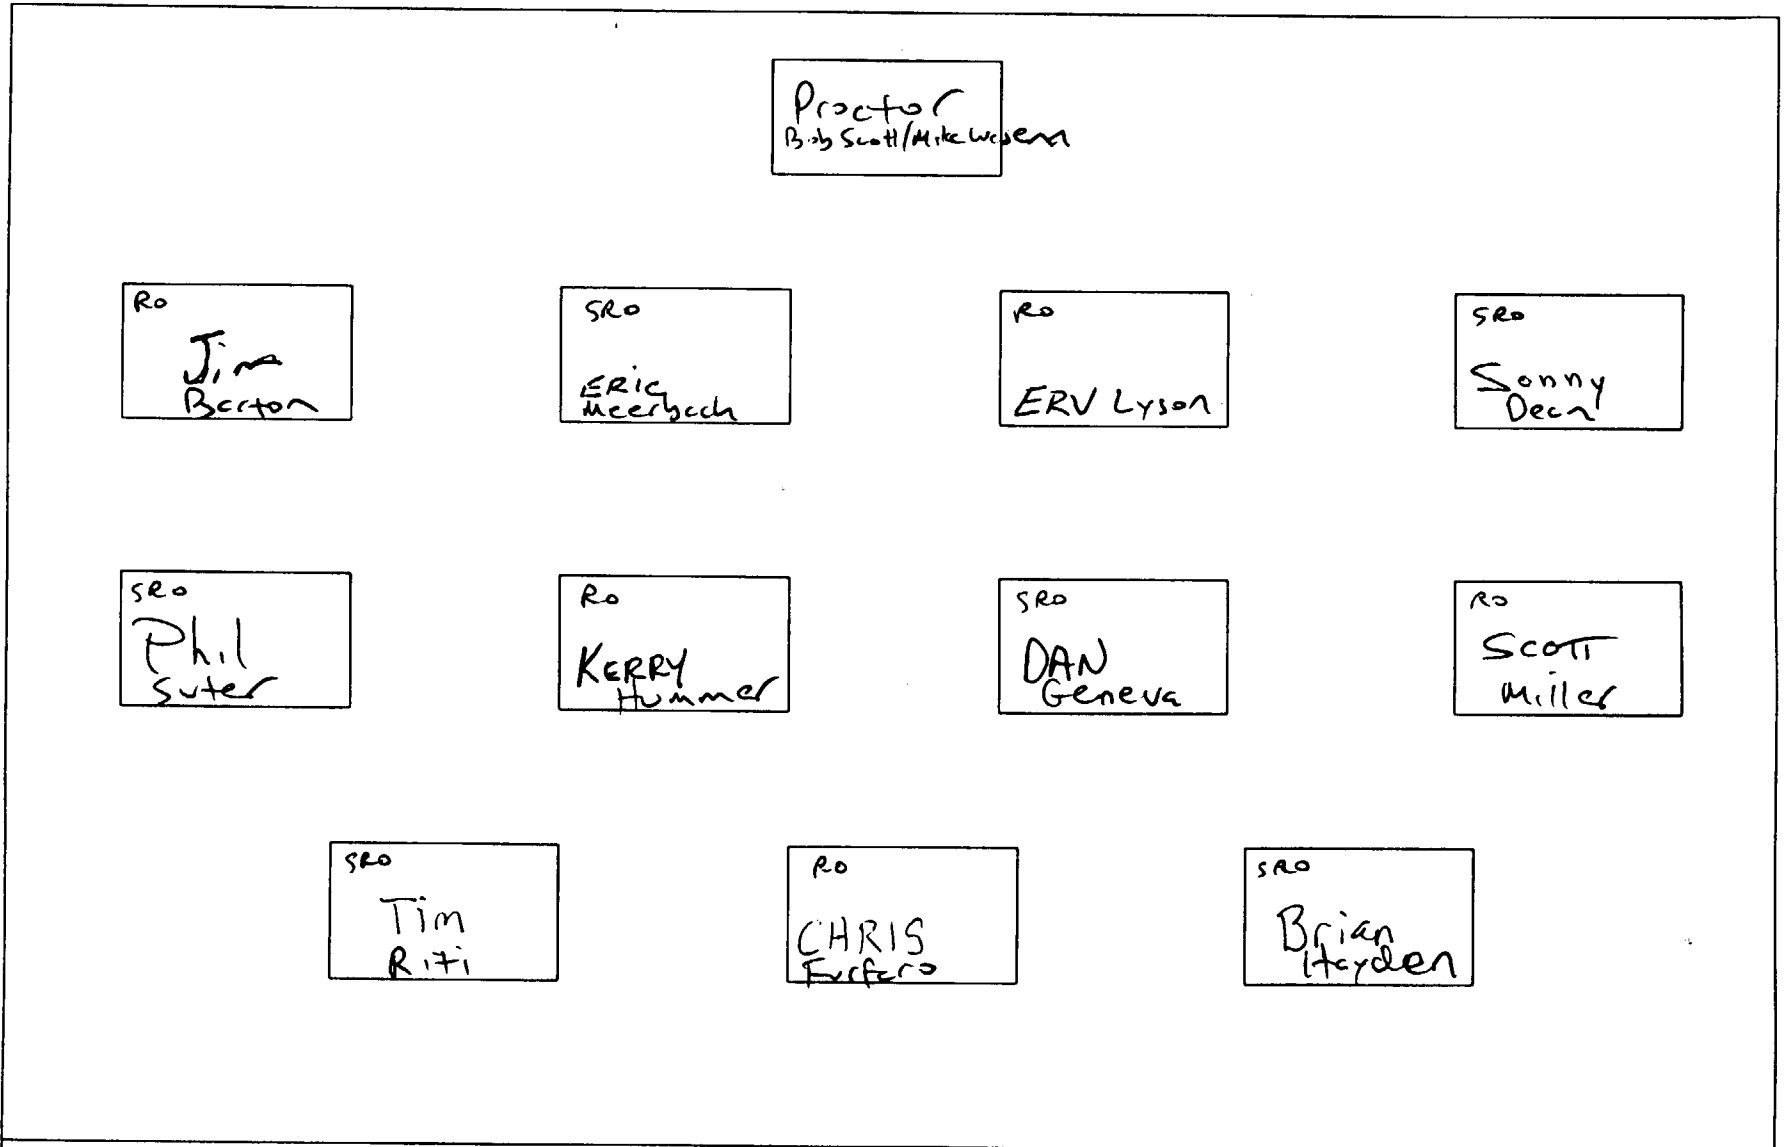 Proctor
Bob Scott/Mike
RO
Jim
Barton
SRO
ERic
Meerbach
RO
ERV Lyson
SRO
Sonny
Dean
SRO
Phil
Suter
RO
KERRY
Hummer
SRO
DAN
Geneva
RO
SCOTT
Miller
SRO
Tim
Riti
RO
CHRIS
Furfaro
SRO
Brian
Hayden